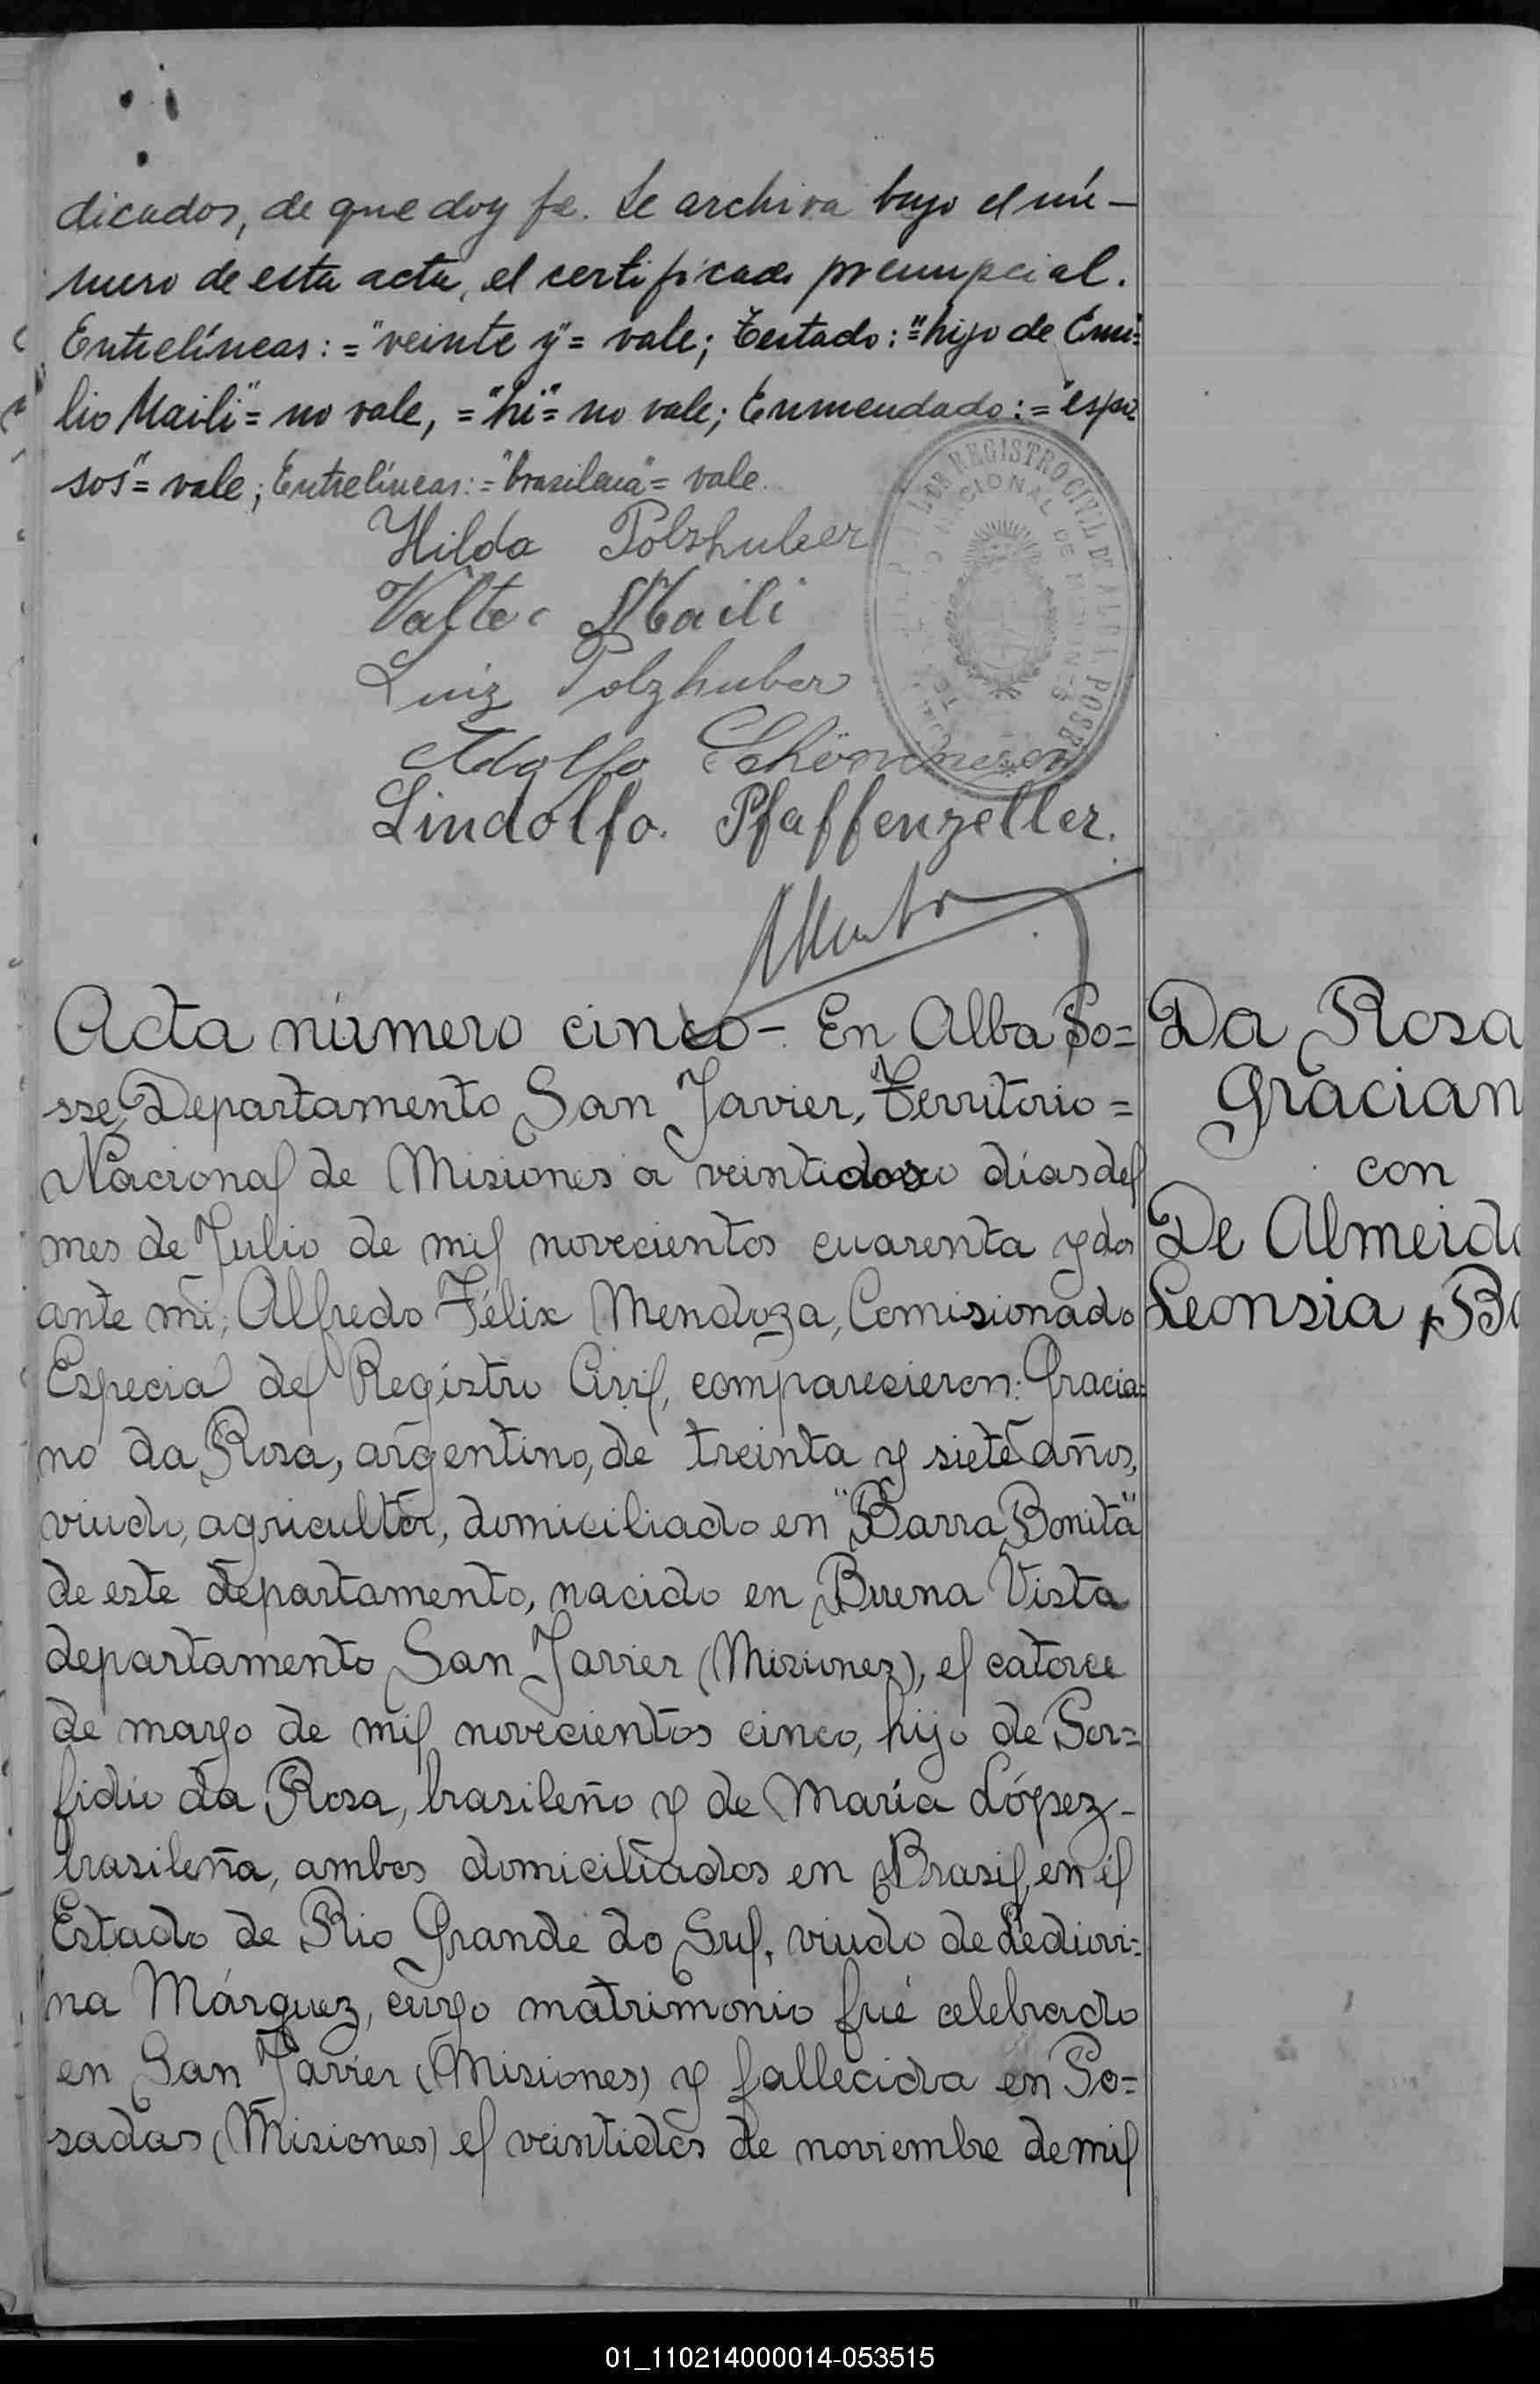 dicados, de que doy fe. Se archiva bajo el nú-
mero de esta acta, el certificado prenupcial.
Entrelíneas: = "veinte y" = vale; Testado: = "hijo de Emi=
lio Maili" = no vale, = "hi" = no vale; Enmendado: = "espo=
sos" = vale; Entrelíneas: = "brasilena" = vale.
Hilda Polzhuber
Valter Maili
Luiz Polzhuber
Adolfo
Lindolfo. Pfaffenzeller.
REGISTRO CIVIL DE ALBA POSSE
NACIONAL DE MISIONES
Acta número cinco-. En Alba Po=
sse, Departamento San Javier, Territorio=
Nacional de Misiones a veintidos días del
mes de Julio de mil novecientos cuarenta y dos
ante mi; Alfredo Félix Mendoza, Comisionado
Especial del Registro Civil, comparecieron: Gracia=
no da Rosa, argentino, de treinta y siete años,
viudo, agricultor, domiciliado en "Barra Bonita"
de este departamento, nacido en Buena Vista
departamento San Javier (Misiones), el catorce
de mayo de mil novecientos cinco, hijo de Por=
fidio da Rosa, brasileño y de María López-
brasileña, ambos domiciliados en Brasil, en el
Estado de Rio Grande do Sul, viudo de Lediovi=
na Márquez, cuyo matrimonio fué celebrado
en San Javier (Misiones) y fallecida en Po=
sadas (Misiones) el veintidos de noviembre de mil
Da Rosa
Gracian
con
De Almeida
Leonsia
01_110214000014-053515